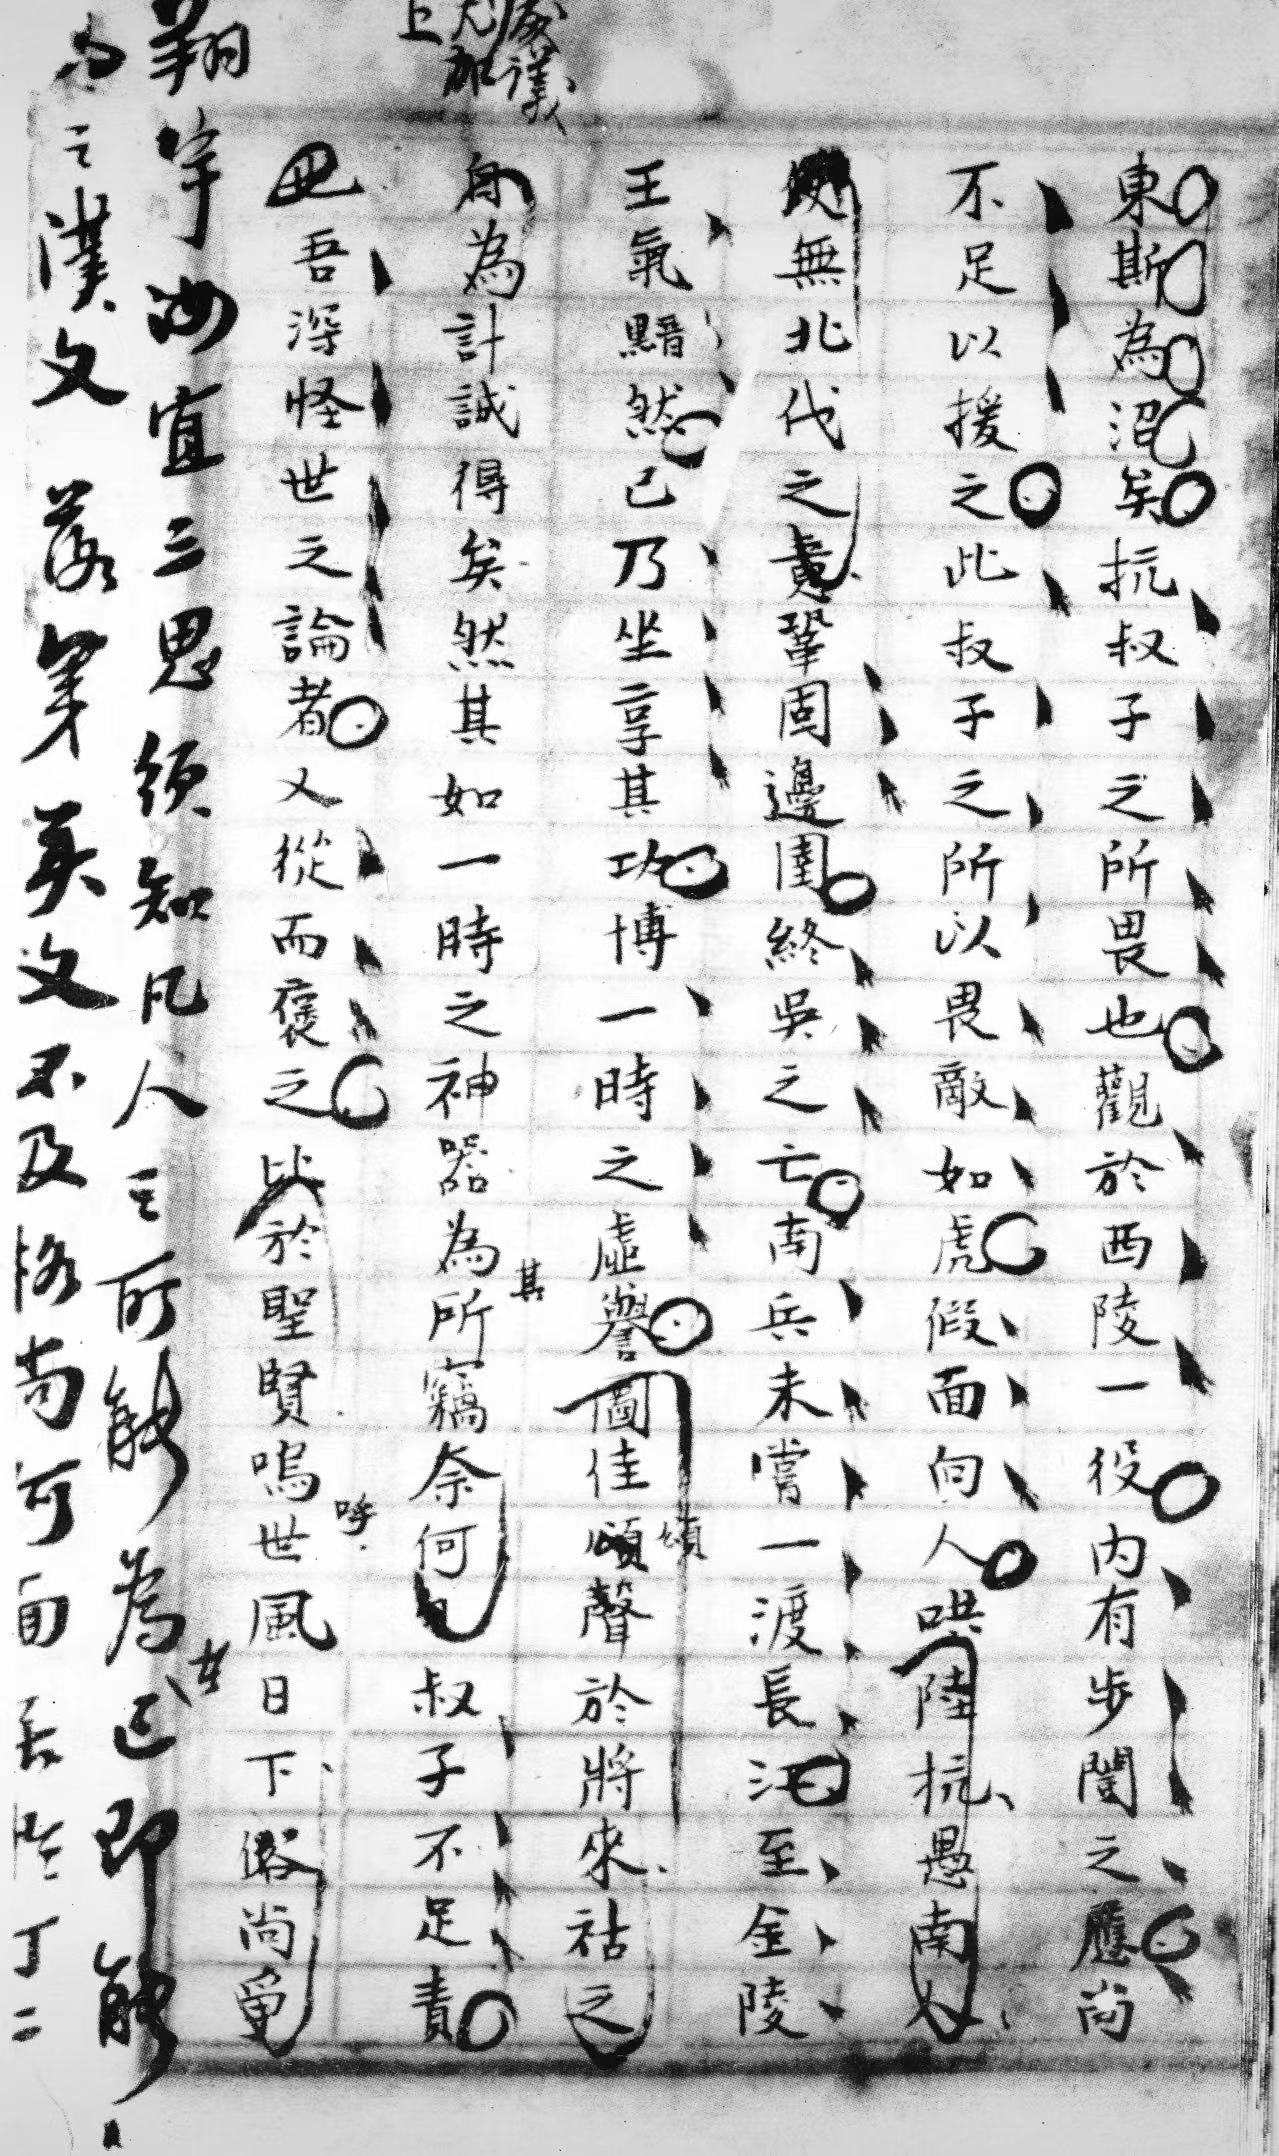 東斯為沼矣抗叔子之所畏也觀於西陵一役內有步闡之應尚
不足以援之此叔子之所以畏敵如虎假面向人哄陸抗愚南人
使無北代之責鞏固邊圉終吳之亡南兵未嘗一渡長江至金陵
王氣黯然已乃坐享其功博一時之虛譽圖佳頌聲於將來祜之
頌
身為計誠得矣然其如一時之神器為所竊奈何叔子不足責
其
吾深怪世之論者又從而褒之比於聖賢嗚世風日下俗尚
呼
上
翔宇 宜三思須知凡人之所能為 即能
之漢文 英文不及格尚可